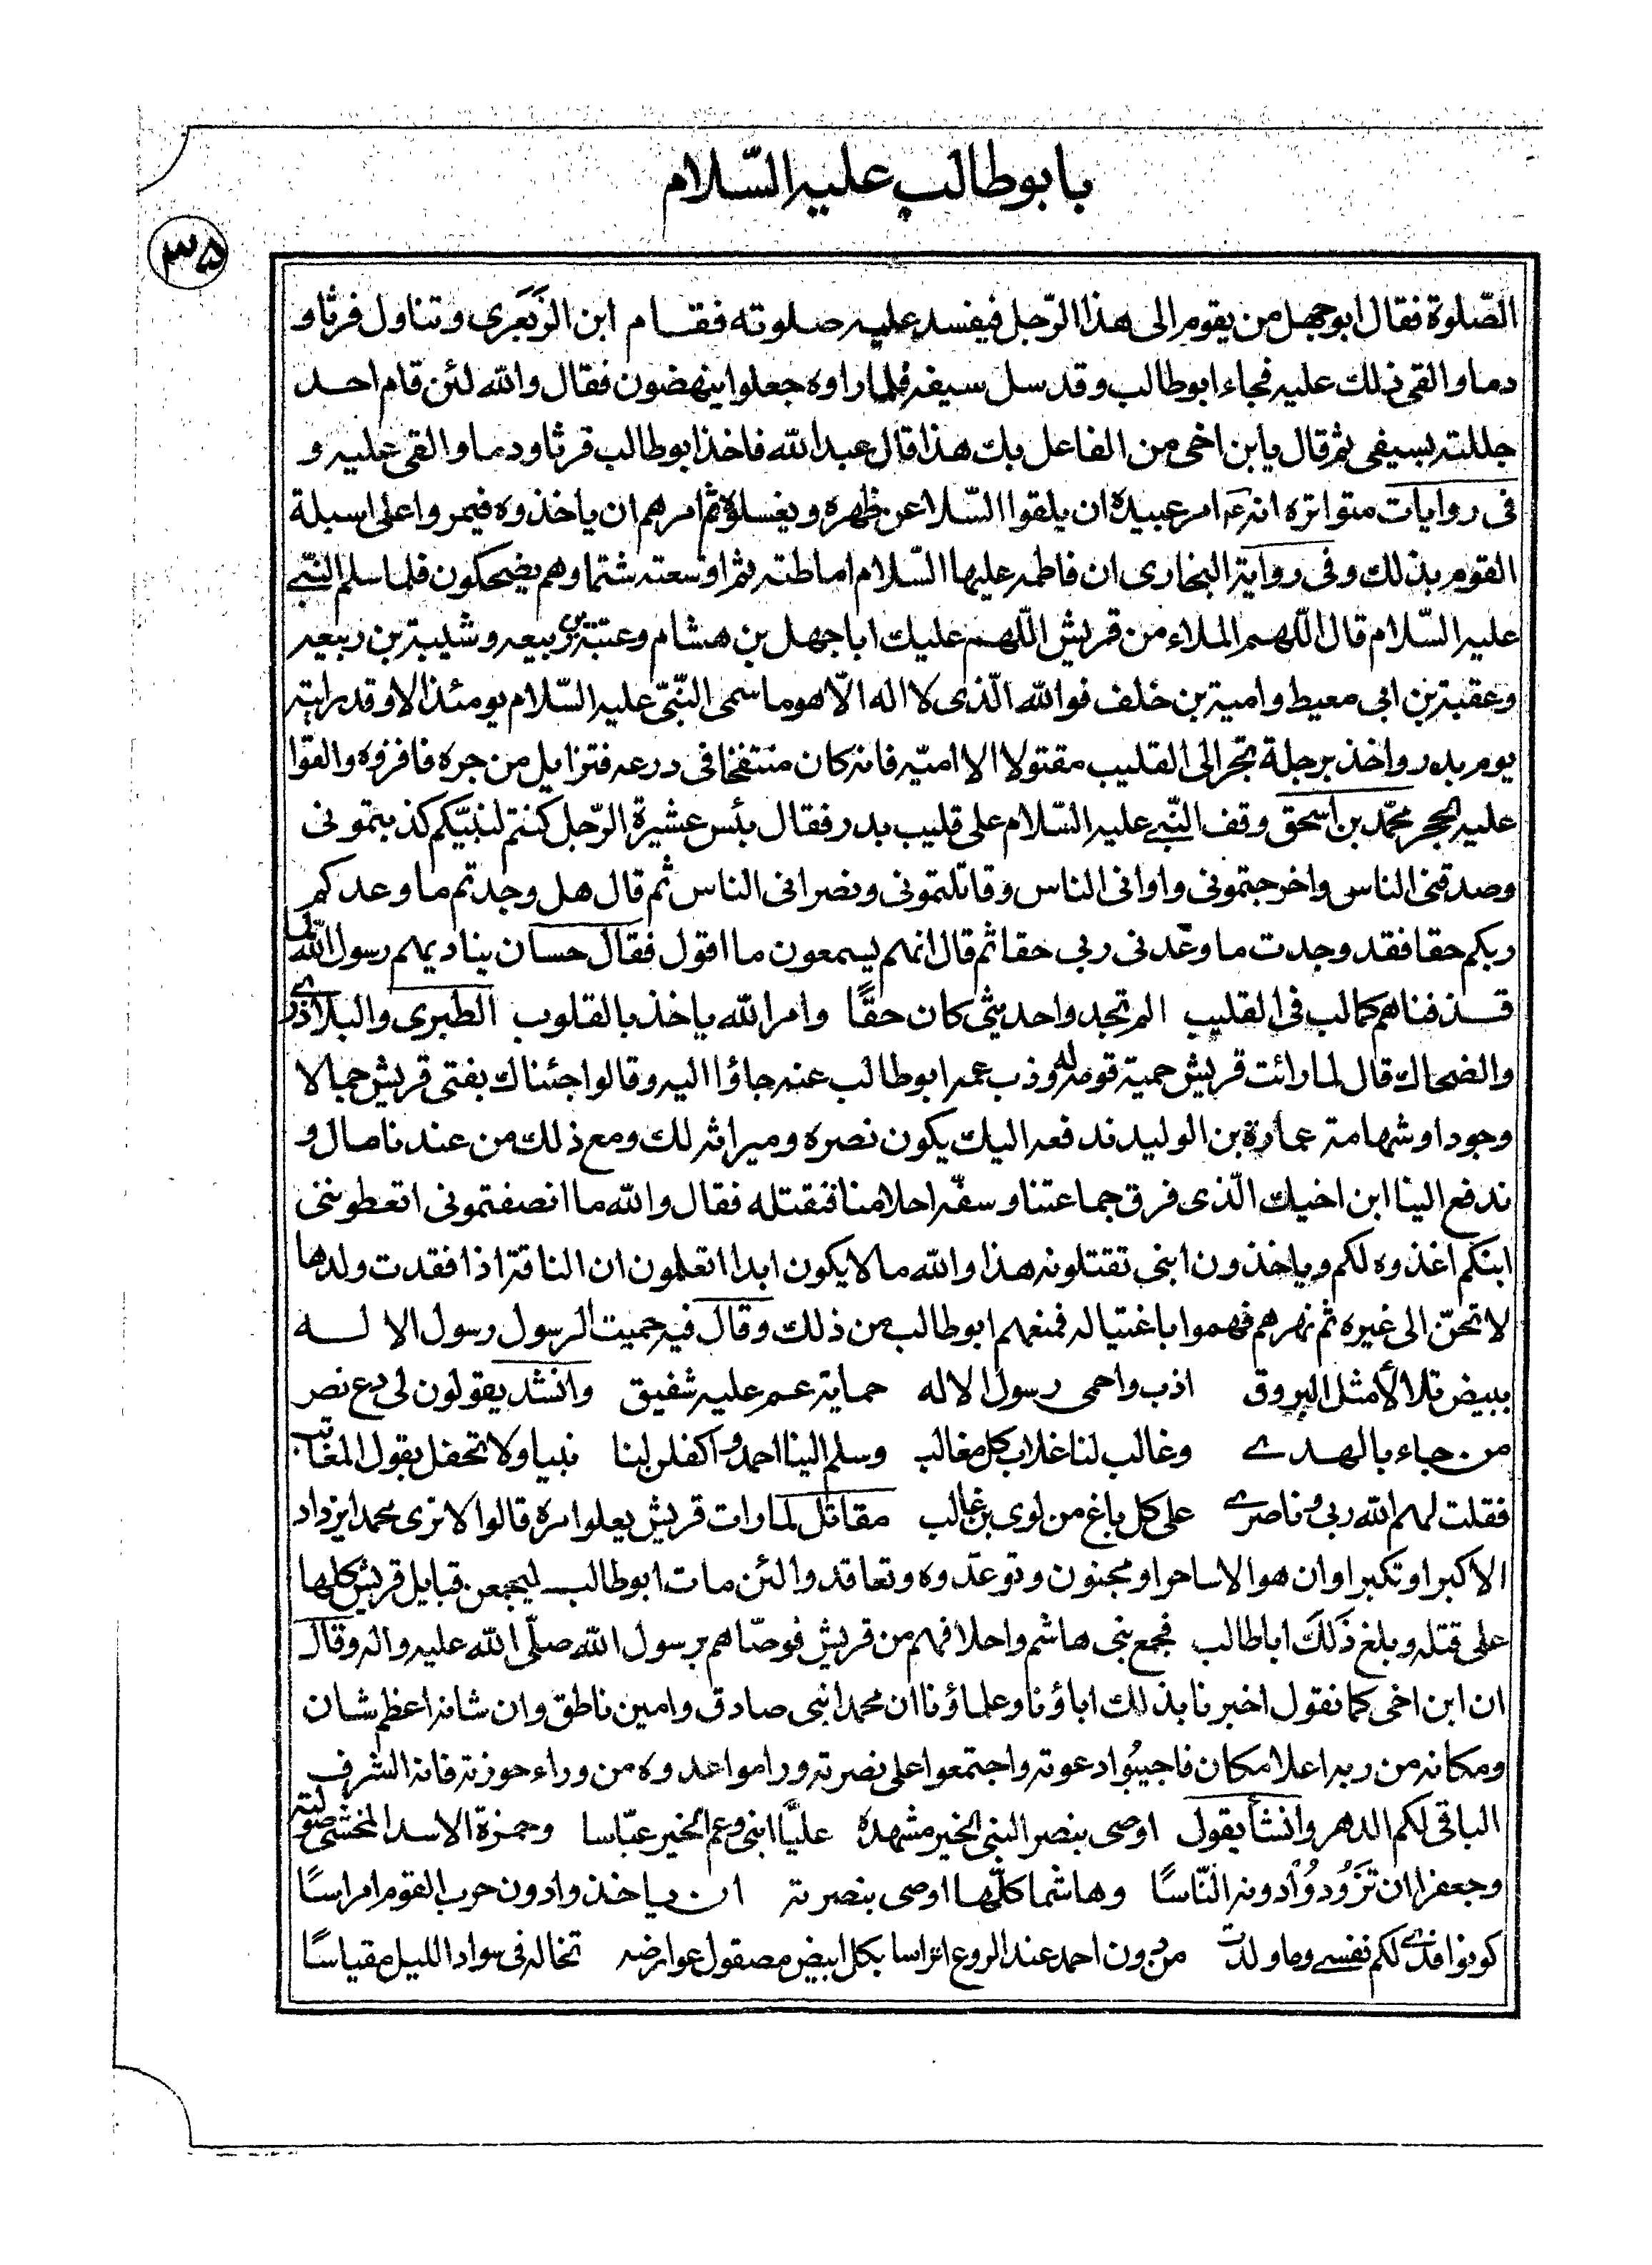 بابوطالب عليه السّلام
٣٥
الصّلوة فقال ابوجهل من يقوم الى هذا الرّجل فيفسد عليه صلوته فقام ابن الزَبَعَرى وتناول فرثا و
دما والقى ذلك عليه فجاء ابوطالب وقد سل سيفه فلما راوه جعلوا ينهضون فقال والله لئن قام احد
جللته بسيفى ثم قال يا بن اخى من الفاعل بك هذا قال عبد الله فاخذ ابوطالب فرثا ودما والقى عليه و
فى روايات متواتره انه امر عبيده ان يلقوا السّلا عن ظهره ويغسلوه ثم امرهم ان ياخذوه فيمروا على اسبلة
القوم بذلك وفى رواية البخارى ان فاطمه عليها السّلام اماطته ثم اوسعته شتما وهم يضحكون فلما سلم النبّى
عليه السّلام قال اللّهم الملاء من قريش اللّهم عليك ابا جهل بن هشام وعتبة بن ربيعه وشيبة بن ربيعه
وعقبة بن ابى معيط وامية بن خلف فوالله الّذى لا اله الّا هو ما سمى النّبّى عليه السّلام يومئذ الا وقد رايته
يوم بدر واخذ برجلة تجر الى القليب مقتولا الا اميّه فانه كان منتفخا فى درعه فتزايل من جره فاقروه والقوا
عليه الحجر محمّد بن اسحق وقف النبّى عليه السّلام على قليب بدر فقال بئس عشيرة الرّجل كنتم لنبيّكم كذبتمونى
وصدقنى الناس واخرجتمونى واوانى الناس وقاتلتمونى ونصرانى الناس ثم قال هل وجدتم ما وعدكم
ربكم حقا فقد وجدت ما وعدنى ربى حقا ثم قال انهم يسمعون ما اقول فقال حسان يناديهم رسول الله لما
قذفناهم كمالب فى القليب الم تجدوا حديثى كان حقًّا وامر الله ياخذ بالقلوب الطبرى والبلاذرى
والضحاك قال لما رائت قريش حمية قومه له وذب عمه ابوطالب عنه جاؤا اليه وقالوا جئناك بفتى قريش جمالا
وجودا وشهامة عمارة بن الوليد ندفعه اليك يكون نصره وميراثه لك ومع ذلك من عندنا مال و
ندفع الينا ابن اخيك الّذى فرق جماعتنا وسفّه احلامنا فنقتله فقال والله ما انصفتمونى اتعطوننى
ابنكم اغذوه لكم وياخذون ابنى تقتلونه هذا والله ما لا يكون ابدا اتعلمون ان الناقة اذا فقدت ولدها
لا تحنّ الى غيره ثم نهرهم فهموا باغتياله فمنعهم ابوطالب من ذلك وقال فيه حميت الرسول رسول الا له
ببيض تلالأ مثل البروق اذب واحمى رسول الاله حماية عم عليه شفيق وانشد يقولون لى دع نصر
من جاء بالهدى وغالب لنا غلاب كل مغالب وسلم الينا احمد واكفلن لنا نبيا ولا تحفل بقول المعاتب
فقلت لهم الله ربى وناصرى على كل باغ من لوى بن غالب مقاتل لما رات قريش يعلو امره قالوا لا نرى محمدا يزداد
الا كبرا وتكبرا وان هو الا ساحر او مجنون وتوعّدوه وتعاقدوا لئن مات ابوطالب ليجمعن قبايل قريش كلها
على قتله وبلغ ذَلكَ اباطالب فجمع بنى هاشم واحلافهم من قريش فوصّاهم برسول الله صلّى الله عليه واله وقال
ان ابن اخى كما نقول اخبرنا بذلك اباؤنا وعلماؤنا ان محمدا نبى صادق وامين ناطق وان شانه اعظم شان
ومكانه من ربه اعلا مكان فاجيبُوا دعوته واجتمعوا على نصرته وراموا عدوه من وراء حوزته فانه الشرف
الباقى لكم الدهر وانشأ يقول اوصى بنصر النبى الخير مشهده عليًّا ابنى وعم الخير عبّاسا وحمزة الاسد المخشى صولته
وجعفرا ان تَزُودُوْا دونه النّاسًا وهاشما كلّها اوصى بنصرته ان ياخذوا دون حرب القوم امراسًا
كونوا فدى لكم نفسى وما ولدت من دون احمد عند الروع اتراسا بكل ابيض مصقول عوارضه تخاله فى سواد الليل مقياسًا